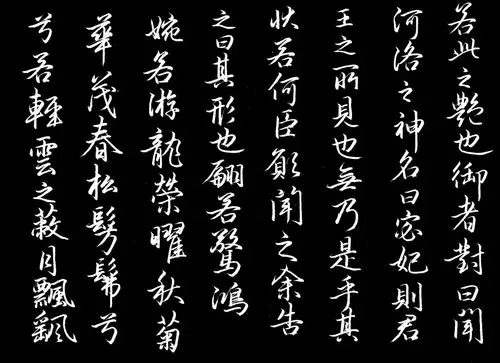 若此之艷也御者對曰聞
河洛之神名曰宓妃則君
王之所見也無乃是乎其
狀若何臣願聞之余告
之曰其形也翩若驚鴻
婉若游龍榮曜秋菊
華茂春松髣髴兮
兮若輕雲之蔽月飄颻